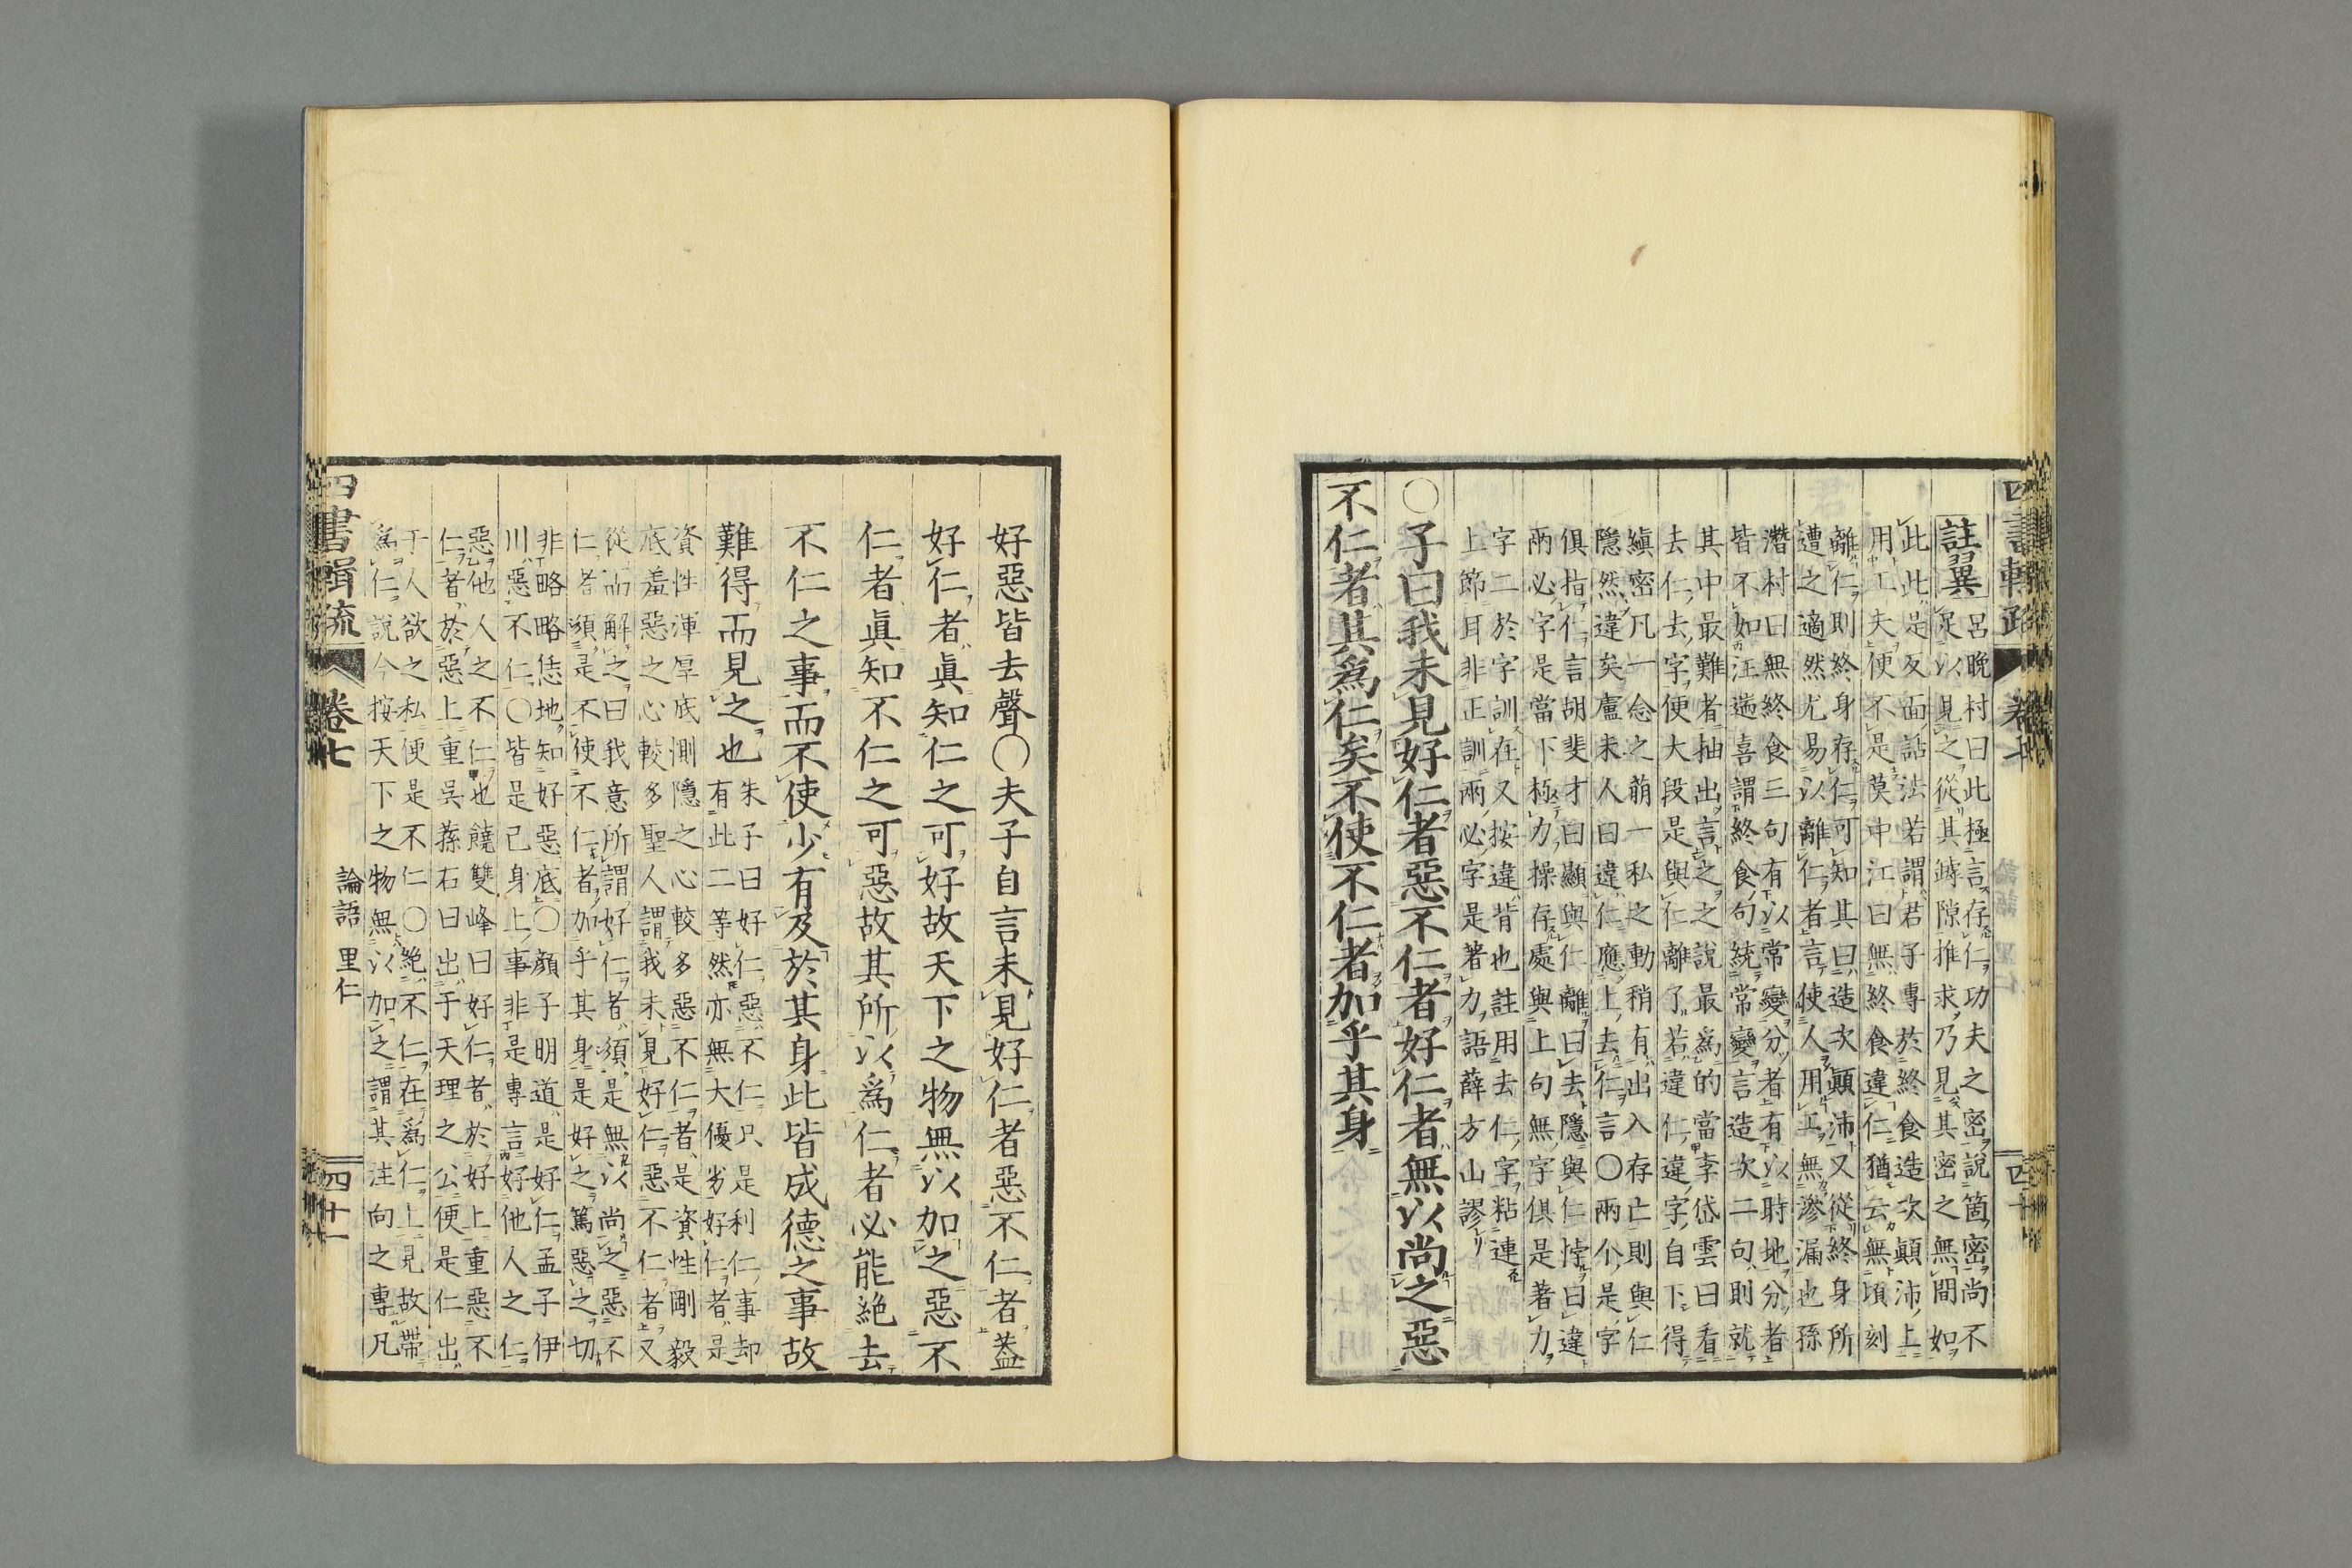 註翼
呂晩村曰此極言存仁功夫之密說箇密尚不
足以見之從其罅隙推求乃見其密之無間如
此此是反面話法若謂君子專於終食造次顚沛上
用工夫便不是莫中江曰無終食違仁猶云無頃刻
離仁則終身存仁可知其曰造次顚沛又從終身所
遭之適然尤易以離仁者言使人用工無滲漏也孫
潛村曰無終食三句有以常變分者有以時地分者
皆不如汪遄喜謂終食句統常變言造次二句則就
其中最難者抽出言之之說最為的當李岱雲曰看
去仁去字便大段是與仁離了若違仁違字自下得
縝密凡一念之萠一私之動稍有出入存亡則與仁
隱然違矣盧未人曰違仁應上去仁言〇兩个是字
俱指仁言胡斐才曰顯與仁離曰去隱與仁悖曰違
兩必字是當下極力操存處與上句無字俱是著力
字二於字訓在又按違背也註用去仁字粘連
上節耳非正訓兩必字是著力語薛方山謬
〇子曰我未見好仁者惡不仁者好仁者無以尚之惡
不仁者其爲仁矣不使不仁者加乎其身
好惡皆去聲〇夫子自言未見好仁者惡不仁者葢
好仁者眞知仁之可好故天下之物無以加之惡不
仁者眞知不仁之可惡故其所以爲仁者必能絶去
不仁之事而不使少有及於其身此皆成德之事故
難得而見之也
朱子曰好仁惡不仁只是利仁事却
有此二等然亦無大優劣好仁者是
資性渾厚底惻隱之心較多惡不仁者是資性剛毅
底羞惡之心較多聖人謂我未見好仁惡不仁者又
從而解之曰我意所謂好仁者須是無以尚之惡不
仁者須是不使不仁者加乎其身是好之篤惡之切
非略略恁地知好惡底〇顔子明道是好仁孟子伊
川惡不仁〇皆是己身上事非是專言好他人之仁
惡他人之不仁也饒雙峰曰好仁者於好上重惡不
仁者於惡上重吳蓀右曰出于天理之公便是仁出
于人欲之私便是不仁〇絶不仁在爲仁上見故帶
爲仁說今按天下之物無以加之謂其注向之專凡
四書輯疏
卷七
論語 里仁
四十一